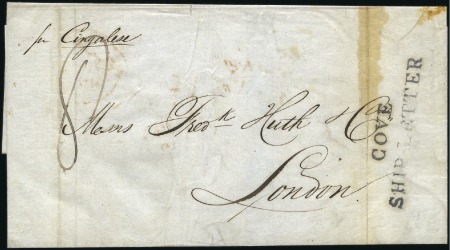 pr Cingalese
8
Messrs Fredk Huth & Co
London
COVE
SHIP LETTER